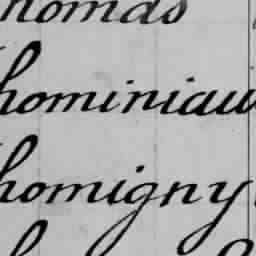 homas
hominiau
homigny